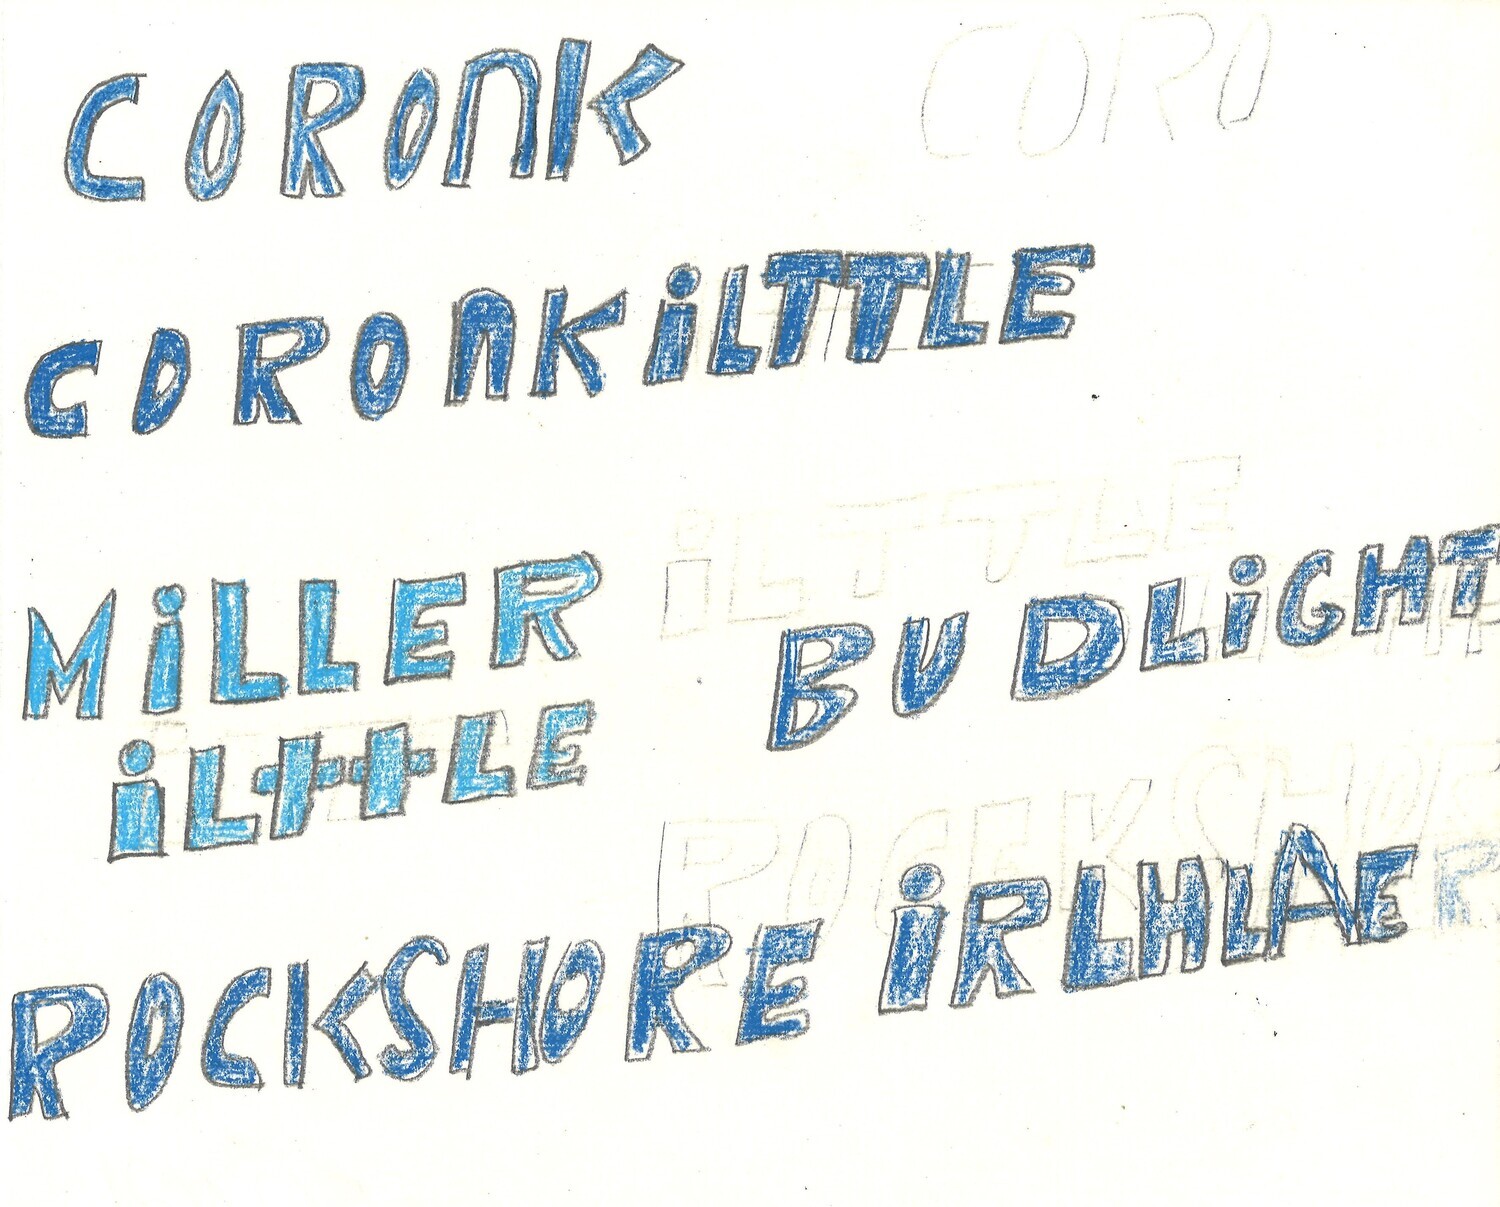 CORONK CORO
CORONKiLTTLE
iLTTLE
MiLLER
BUDLiGHT
iLttLE
ROCKSHORE iRLHLAE